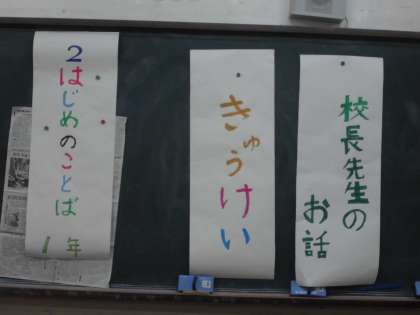 校長先生の
お話
きゅうけい
2はじめのことば 1年